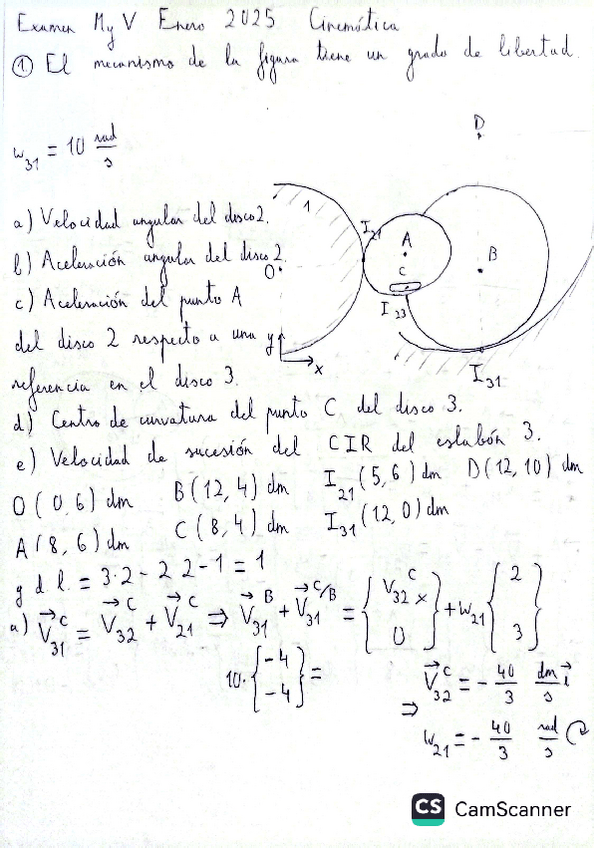 Examen M y V Enero 2025 Cinemática
① El mecanismo de la figura tiene un grado de libertad.
w₃₁ = 10 rad/s
D
a) Velocidad angular del disco 2.
1
I₂₁
A
b) Aceleración angular del disco 2.
O
C
B
c) Aceleración del punto A
I₂₃
del disco 2 respecto a una
y
x
referencia en el disco 3.
I₃₁
d) Centro de curvatura del punto C del disco 3.
e) Velocidad de sucesión del CIR del eslabón 3.
O(0,6) dm B(12,4) dm I₂₁(5,6) dm D(12,10) dm
A(8,6) dm C(8,4) dm I₃₁(12,0) dm
g d l. = 3·2 - 2 2 - 1 = 1
a) V⃗₃₁ᶜ = V⃗₃₂ᶜ + V⃗₂₁ᶜ ⇒ V⃗₃₁ᴮ + V⃗₃₁^C/B = {V₃₂ᶜ x 0} + w₂₁ {2 3}
10·{-4 -4} =
⇒ V⃗₃₂ᶜ = - 40/3 dm/s i⃗
w₂₁ = - 40/3 rad/s ↻
CS CamScanner